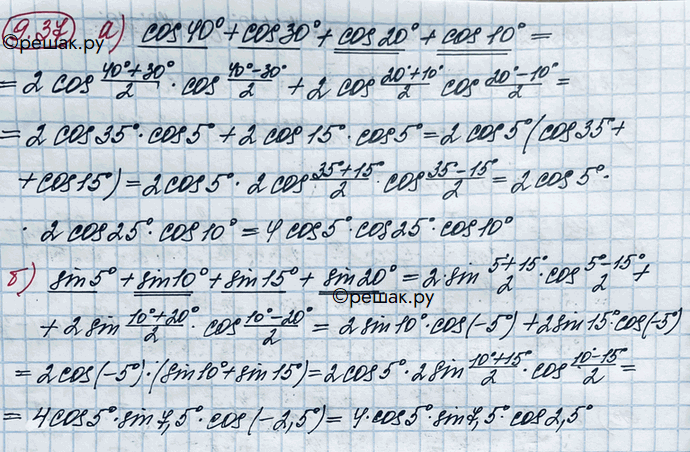 9.37 а) cos40° + cos30° + cos20° + cos10° =
©решак.ру
= 2 cos (40°+30°)/2 · cos (40°-30°)/2 + 2 cos (20°+10°)/2 cos (20°-10°)/2 =
= 2 cos35° · cos5° + 2 cos15° · cos5° = 2 cos5° (cos35 +
+ cos15°) = 2 cos5° · 2 cos (35+15°)/2 · cos (35-15°)/2 = 2 cos5° ·
· 2 cos25° · cos10° = 4 cos5° · cos25° · cos10°
б) sin5° + sin10° + sin15° + sin20° = 2 · sin (5+15°)/2 · cos (5°-15°)/2 +
©решак.ру
+ 2 sin (10°+20°)/2 · cos (10°-20°)/2 = 2 sin10° · cos(-5°) + 2 sin15° · cos(-5°)
= 2 cos(-5°) · (sin10° + sin15°) = 2 cos5° · 2 sin (10°+15°)/2 · cos (10°-15°)/2 =
= 4 cos5° · sin7,5° · cos(-2,5°) = 4 · cos5° · sin7,5° · cos2,5°